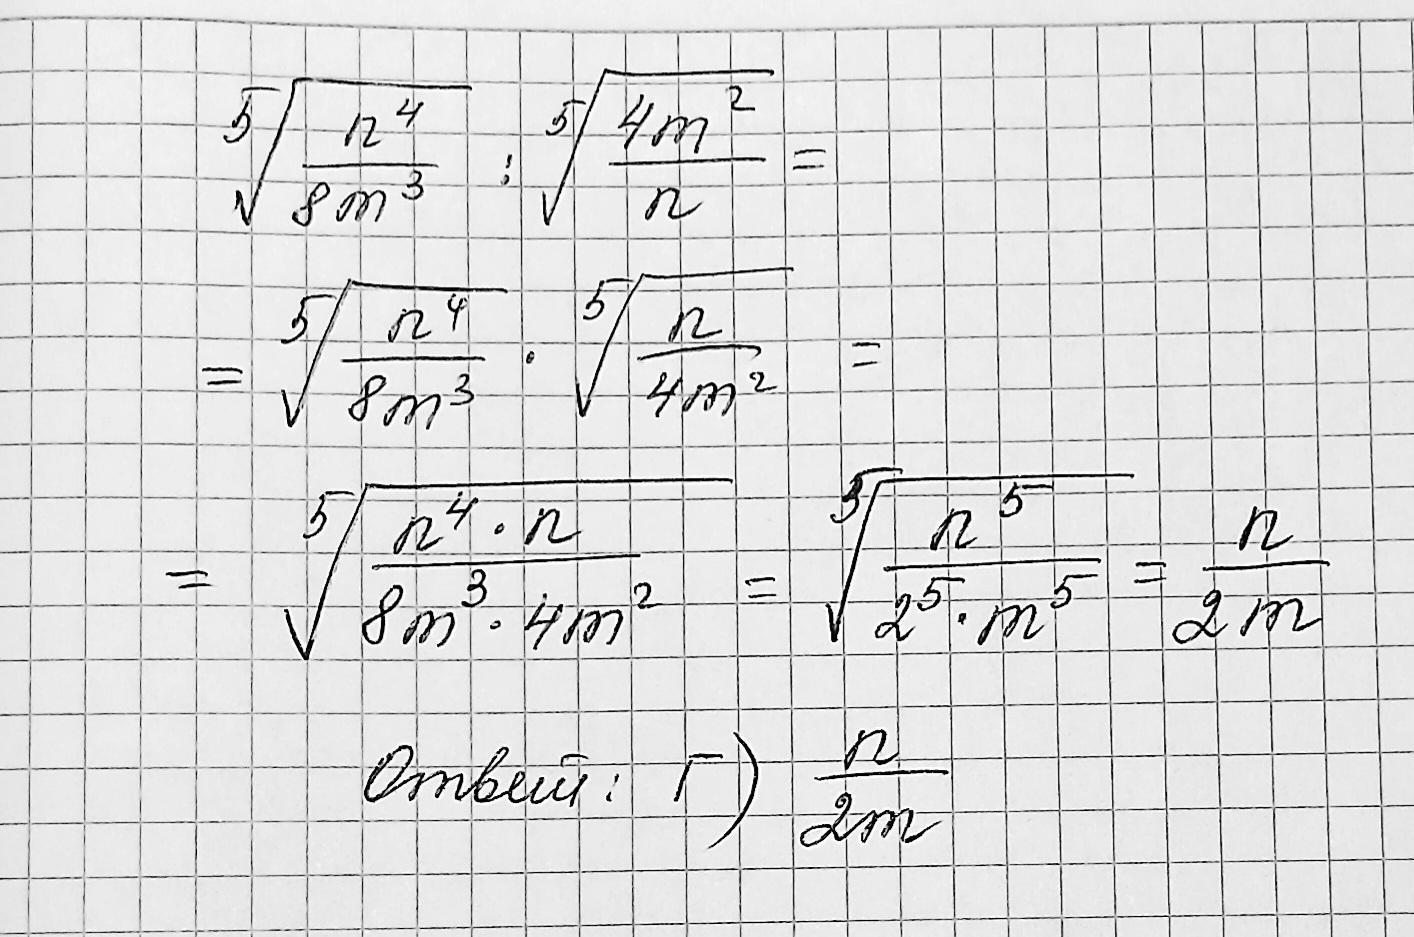 \sqrt[5]{\frac{n^4}{8m^3}} : \sqrt[5]{\frac{4m^2}{n}} =
= \sqrt[5]{\frac{n^4}{8m^3}} \cdot \sqrt[5]{\frac{n}{4m^2}} =
= \sqrt[5]{\frac{n^4 \cdot n}{8m^3 \cdot 4m^2}} = \sqrt[5]{\frac{n^5}{2^5 \cdot m^5}} = \frac{n}{2m}
Ответ: г) \frac{n}{2m}